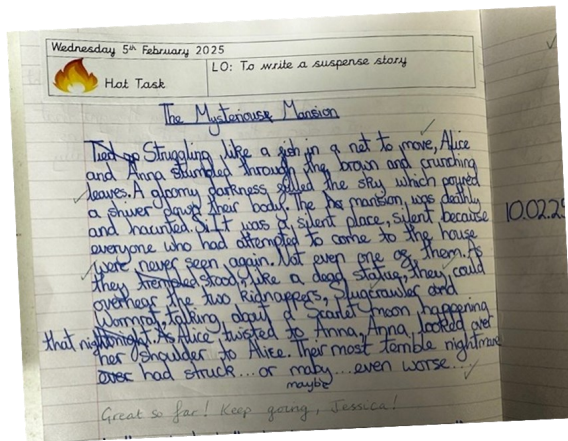 Wednesday 5th February 2025
LO: To write a suspense story
Hot Task
The Mysterious Mansion
Tied up Struggling like a fish in a net to move, Alice
and Anna stumbled through the brown and crunching
leaves. A gloomy darkness filled the sky which poured
a shiver down their body. The mansion, was deathly
and haunted. It was a silent place, silent because
everyone who had attempted to come to the house
were never seen again. Not even one of them. As
they trembled stood, like a dead statue, they could
overhear the two kidnappers, Slugcrawler and
Wormrat, talking about a Scarlet moon happening
that night tonight. As Alice twisted to Anna, Anna looked over
her shoulder to Alice. Their most terrible nightmare
ever had struck... or maby... even worse...
maybe
Great so far! Keep going, Jessica!
10.02.25